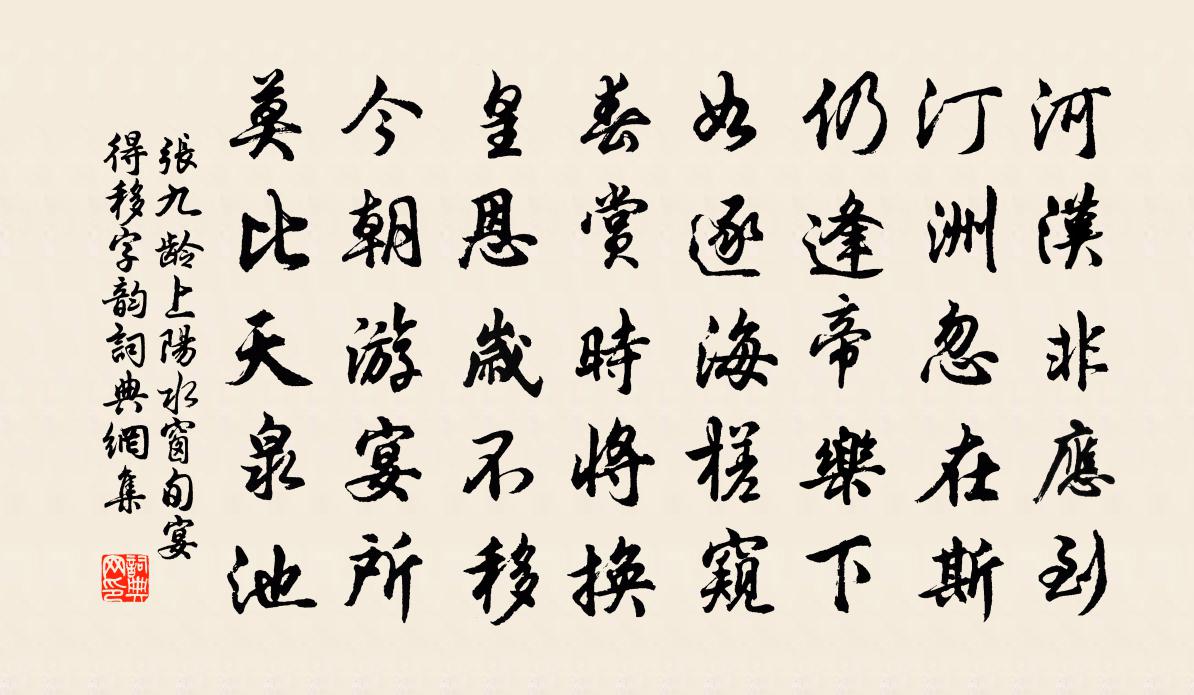 河漢非應到
汀洲忽在斯
仍逢帝樂下
如逐海槎窺
春賞時將換
皇恩歲不移
今朝游宴所
莫比天泉池
張九齡上陽水窗旬宴
得移字韵詞典網集
詞典网印